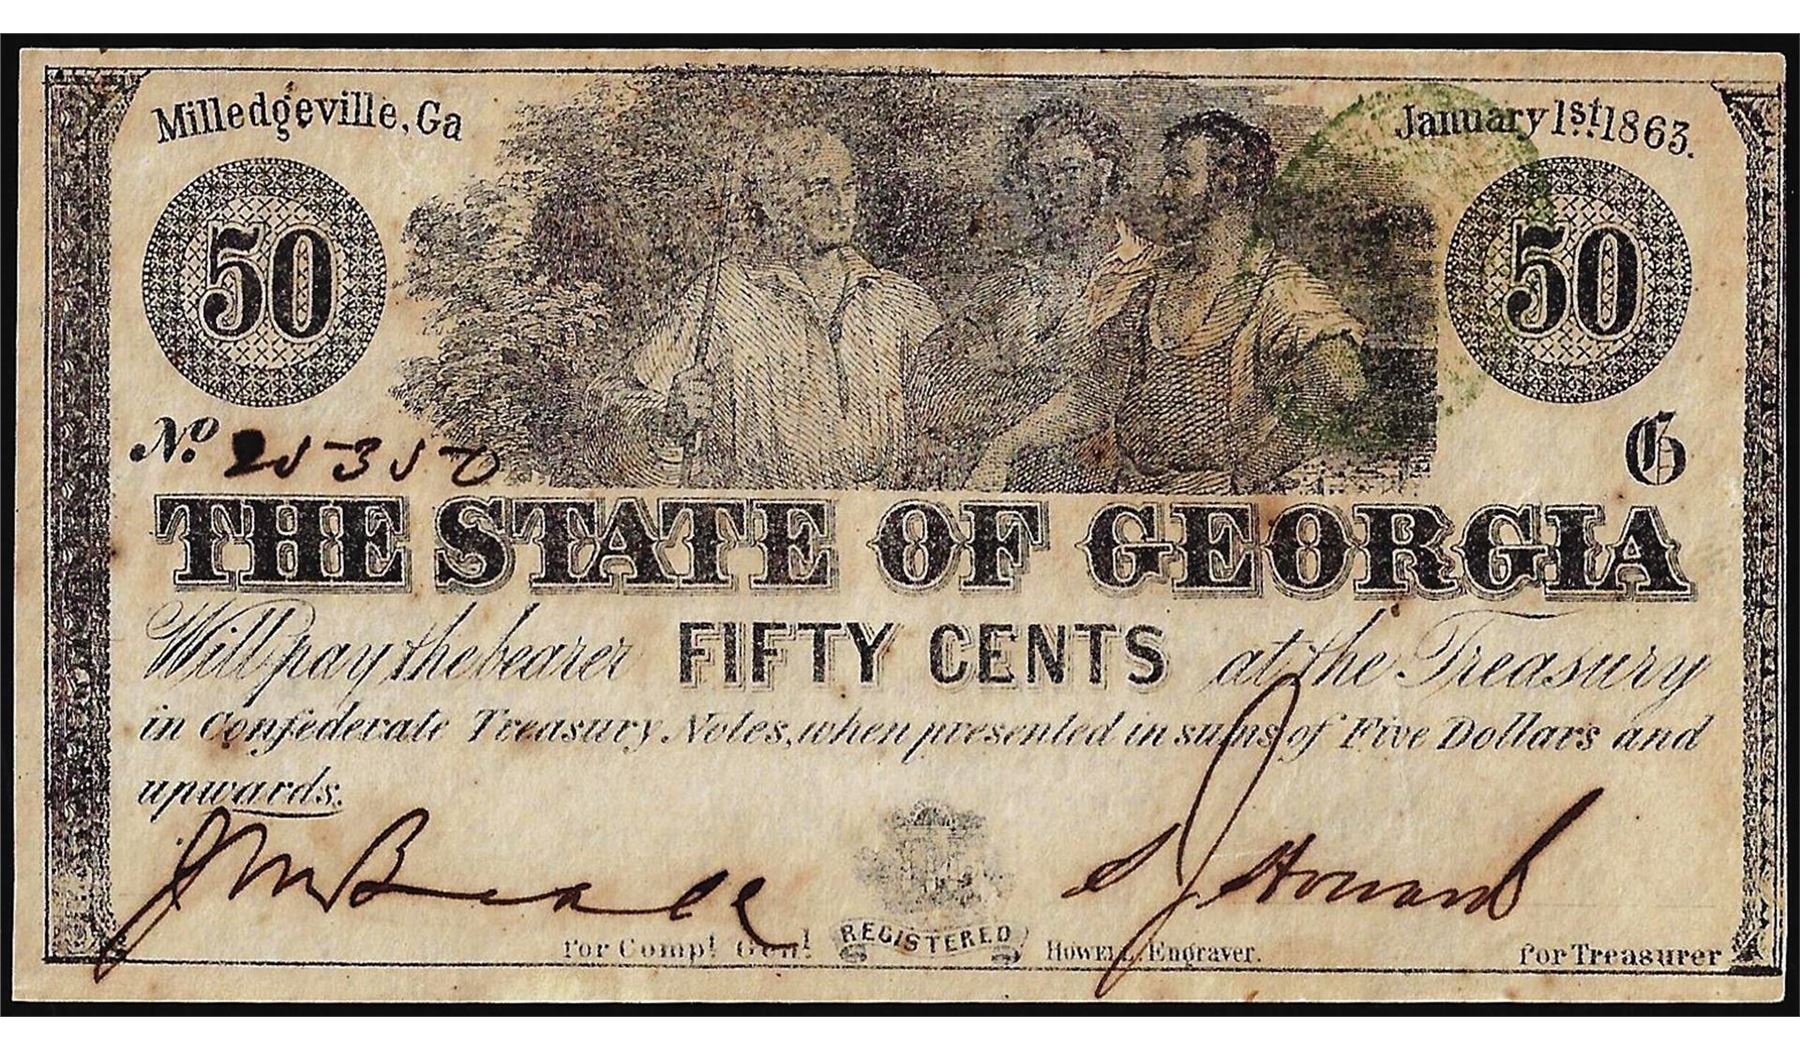 Milledgeville, Ga
January 1st. 1863.
50
50
No. 25350
G
THE STATE OF GEORGIA
Will pay the bearer FIFTY CENTS at the Treasury
in Confederate Treasury Notes, when presented in sums of Five Dollars and
upwards.
J M B
S J Howard
for Compt. Genl
REGISTERED
HOWELL, Engraver.
for Treasurer